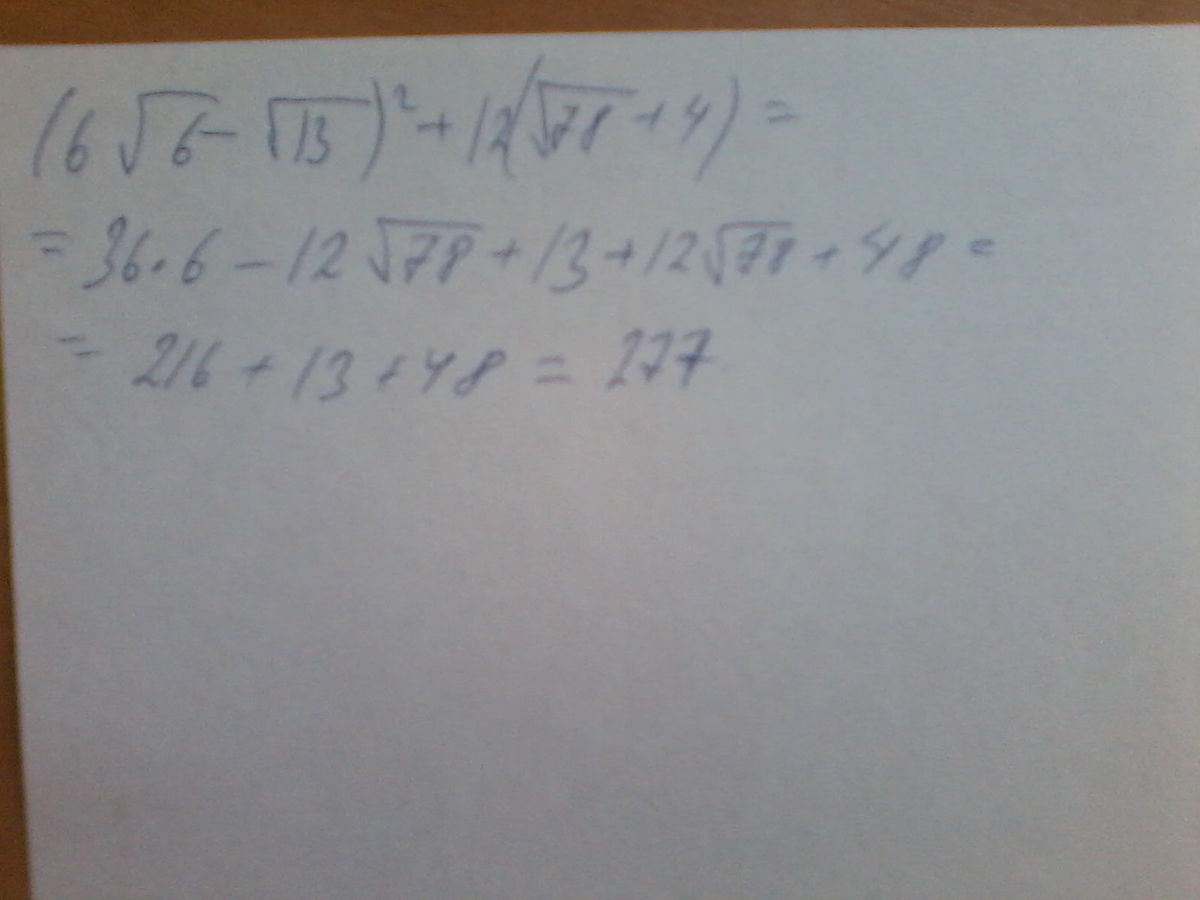 (6√6 - √13)² + 12(√78 + 4) =
= 36·6 - 12√78 + 13 + 12√78 + 48 =
= 216 + 13 + 48 = 277